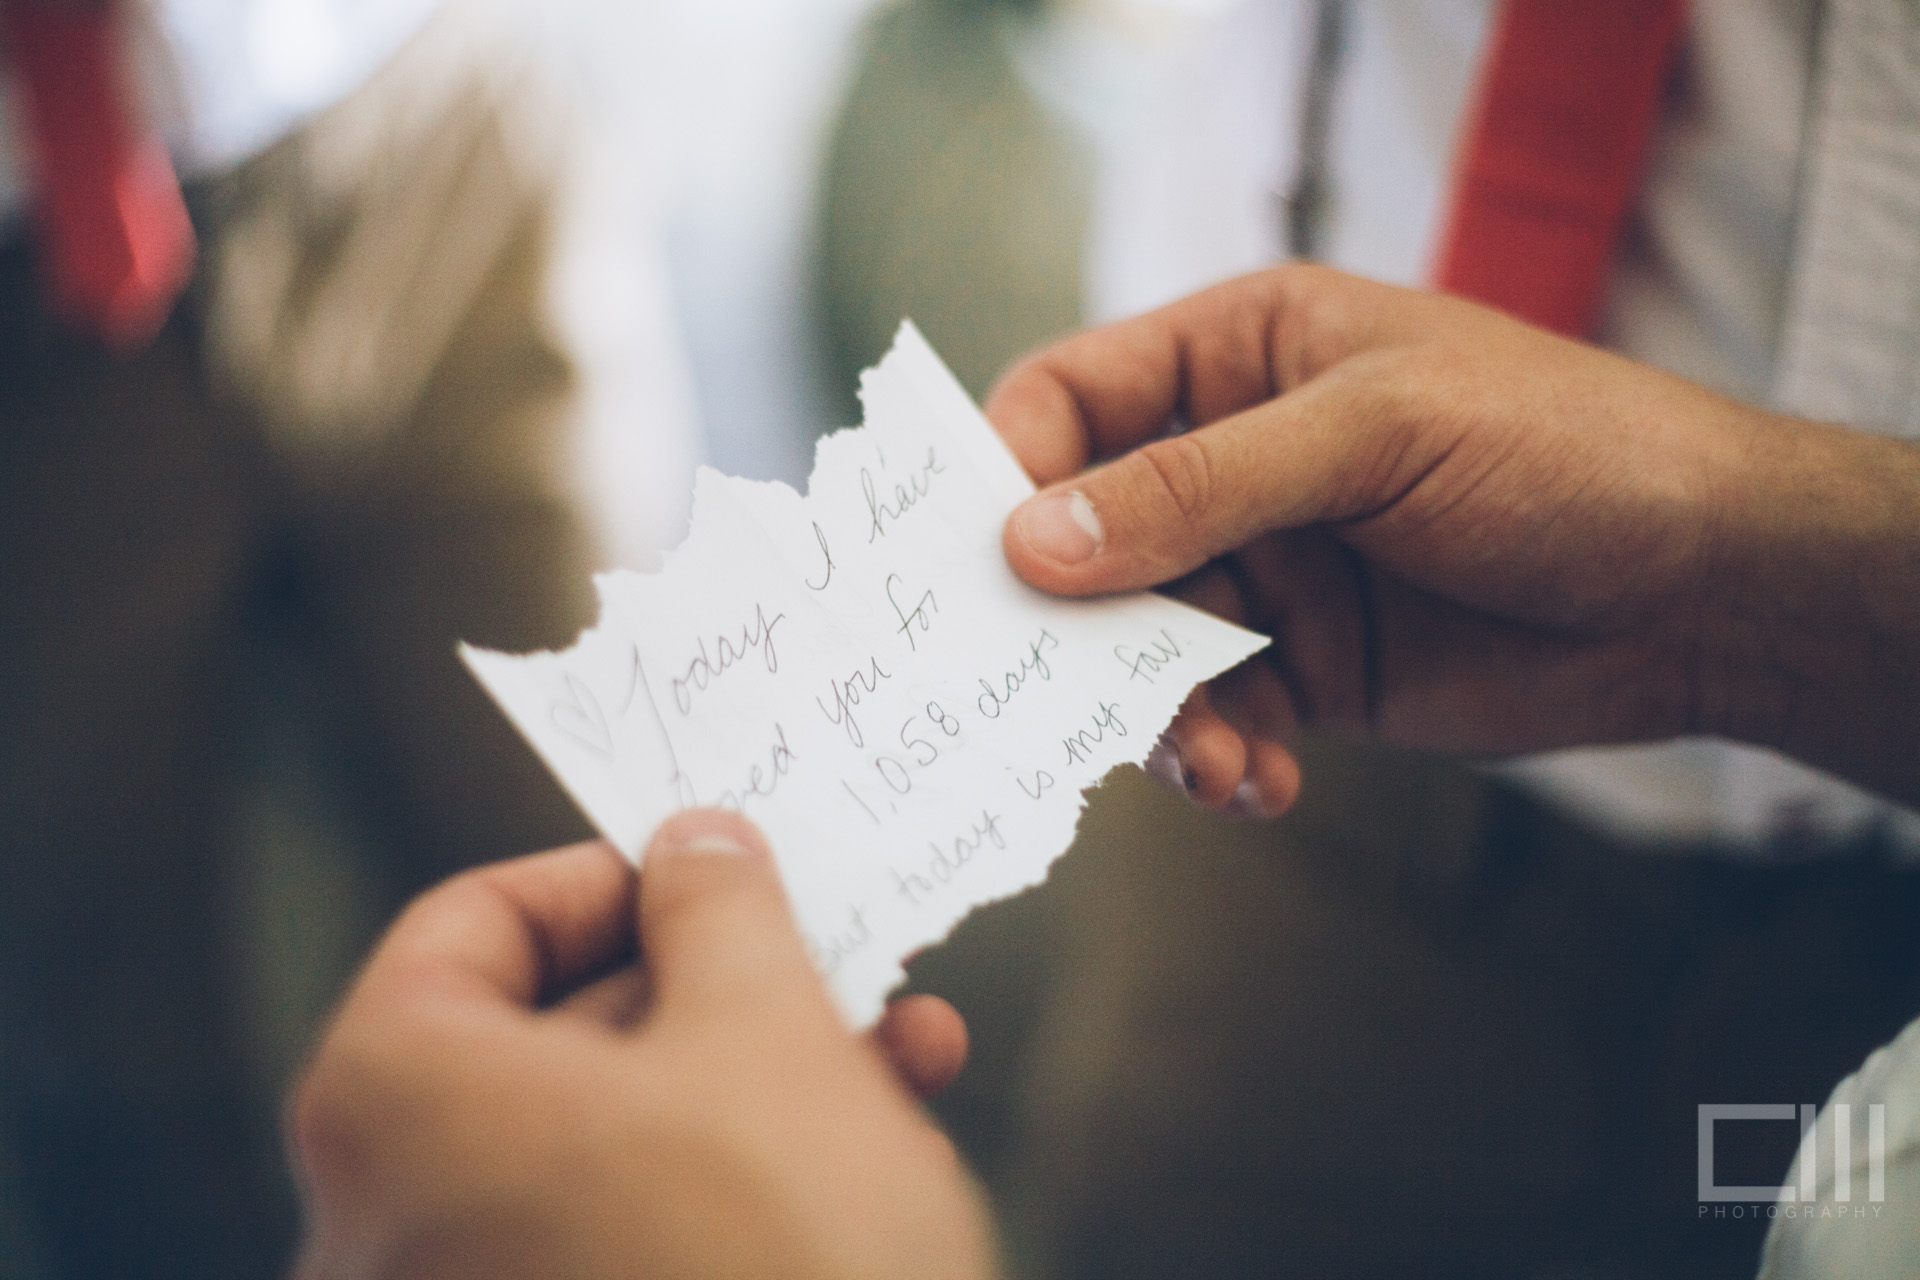 ♡ Today I have
loved you for
1,058 days
but today is my fav.
PHOTOGRAPHY